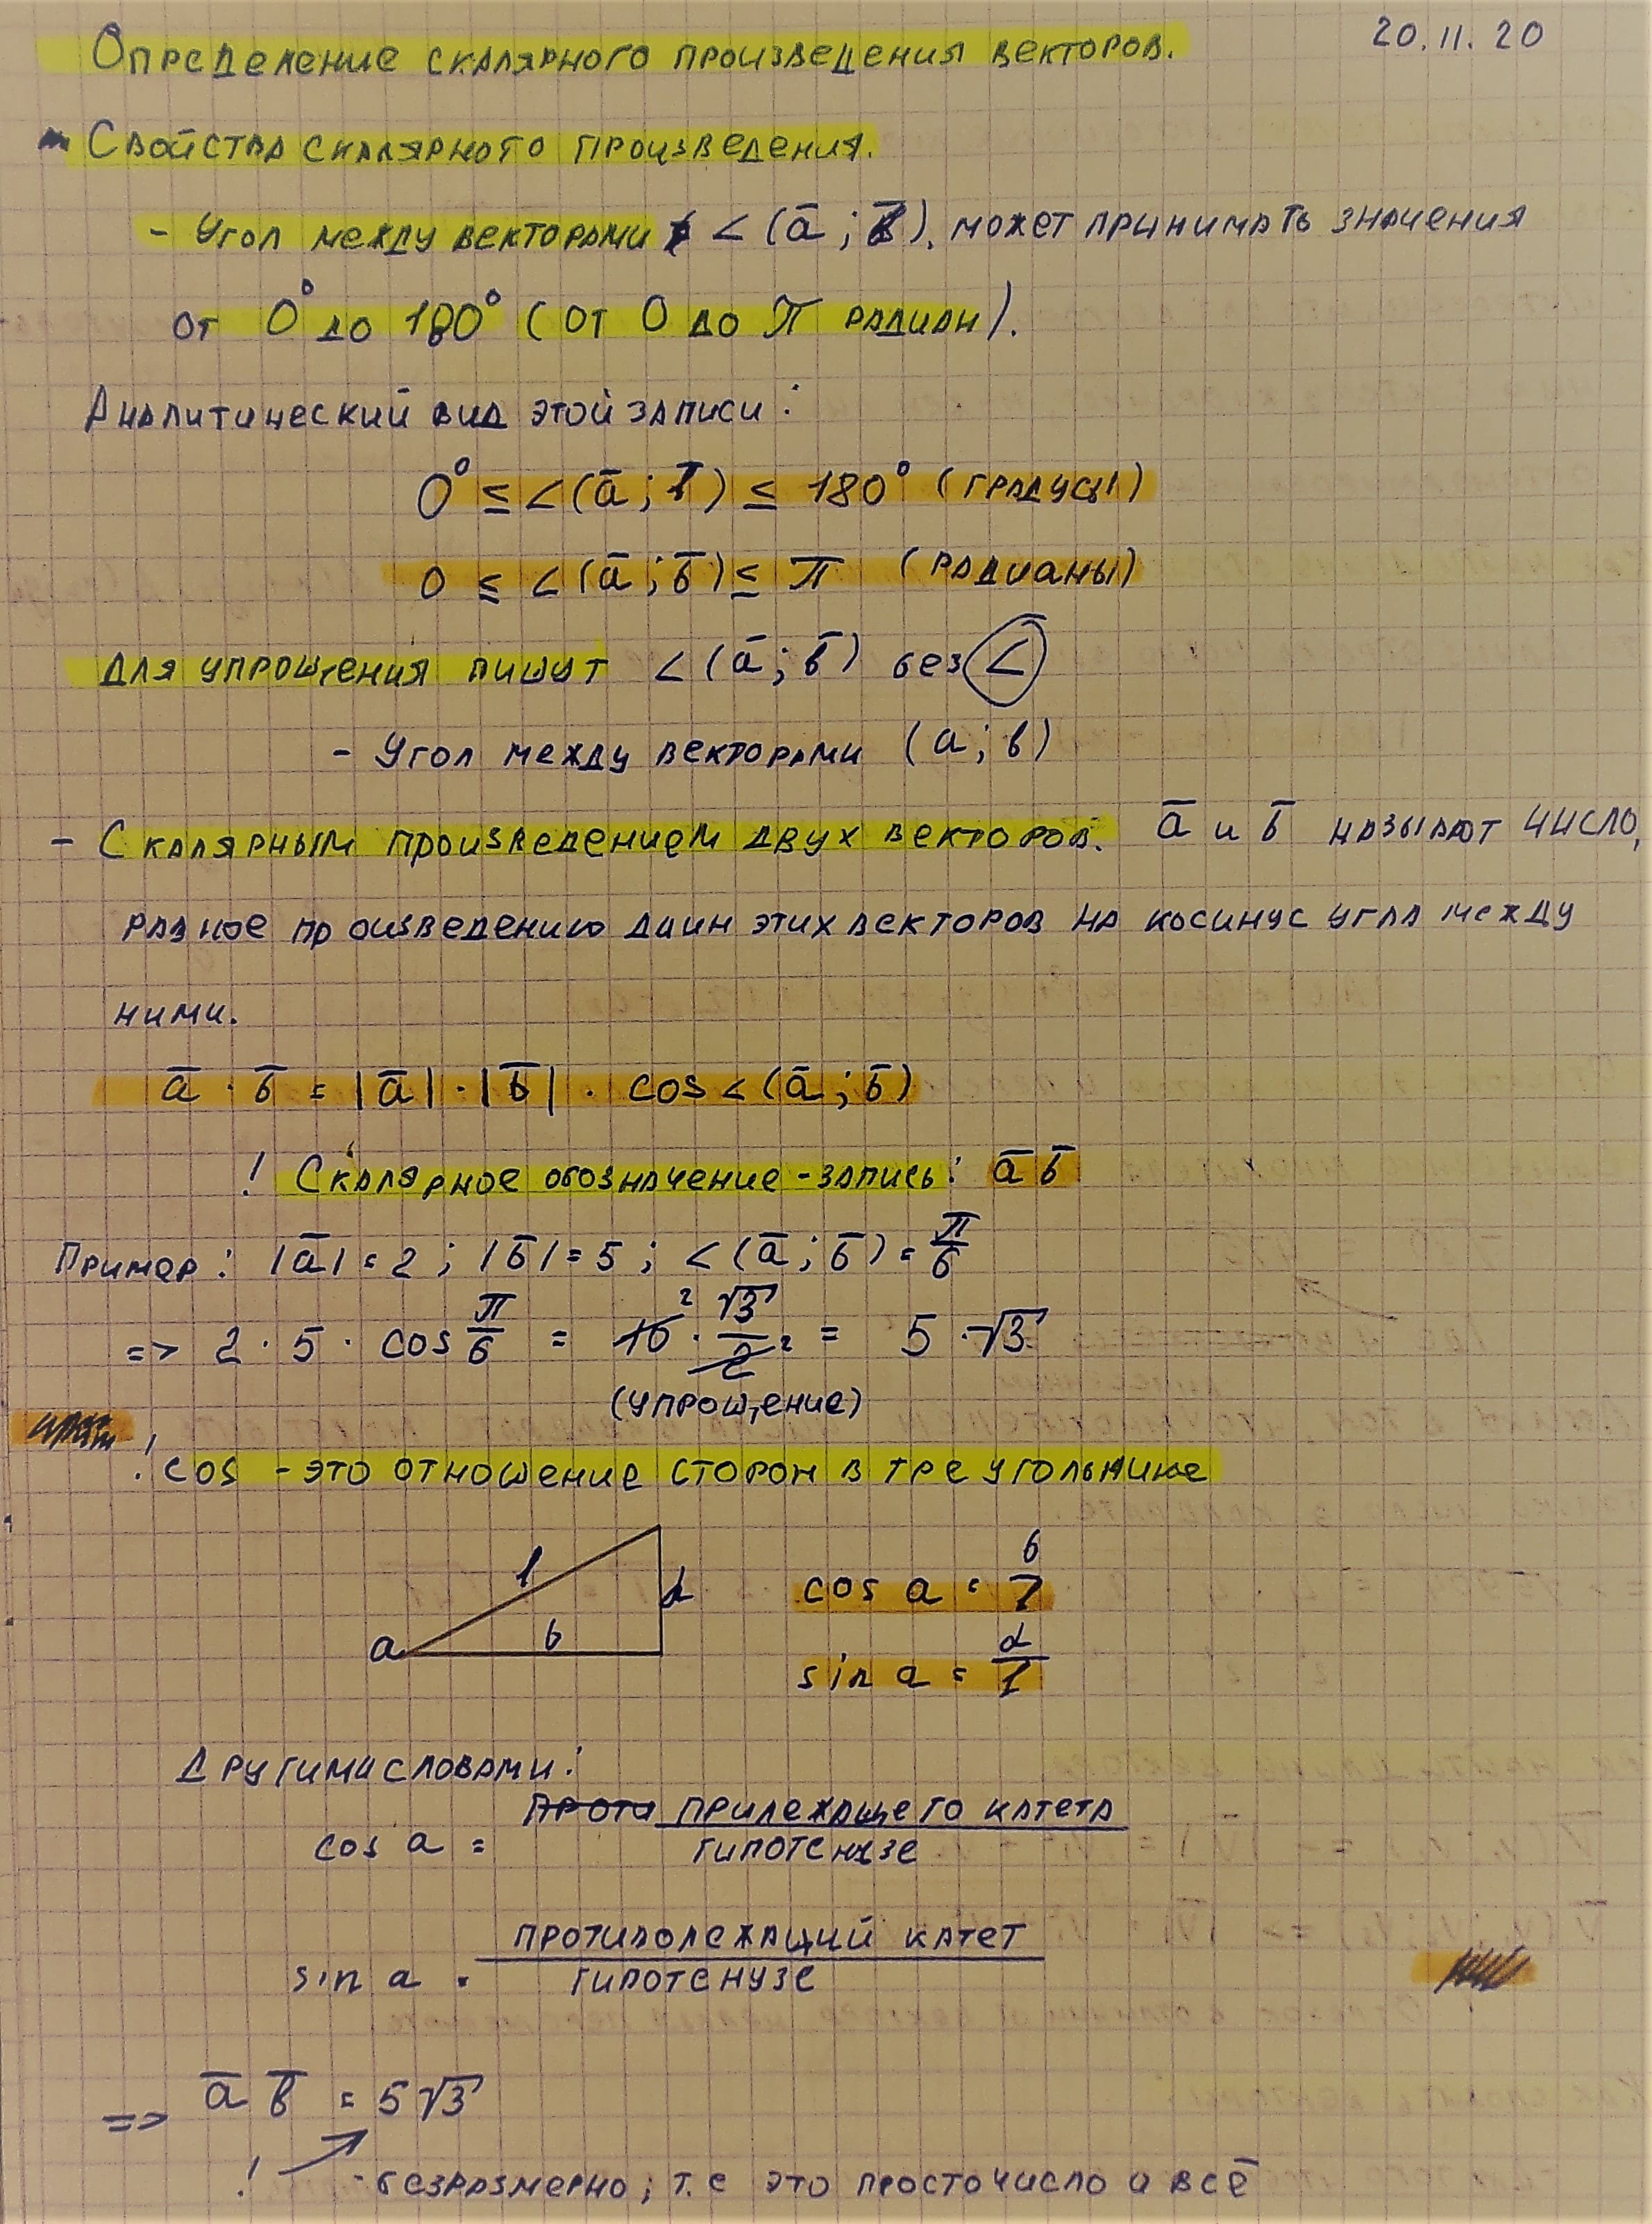 Определение скалярного произведения векторов. 20.11.20
Свойства скалярного произведения.
- Угол между векторами ∠(a̅; b̅). может принимать значения
от 0° до 180° (от 0 до π радиан).
Аналитический вид этой записи:
0° ≤ ∠(a̅; b̅) ≤ 180° (градусы)
0 ≤ ∠(a̅; b̅) ≤ π (радианы)
Для упрощения пишут ∠(a̅; b̅) без ∠
- Угол между векторами (a; b)
- Скалярным произведением двух векторов. a̅ и b̅ называют число,
равное произведению длин этих векторов на косинус угла между
ними.
a̅ · b̅ = |a̅| · |b̅| · cos∠(a̅; b̅)
! Скалярное обозначение - запись: a̅ b̅
Пример: |a̅| = 2; |b̅| = 5; ∠(a̅; b̅) = π/6
=> 2 · 5 · cos π/6 = 10 · √3/2 = 5 · √3
(упрощение)
! cos - это отношение сторон в треугольнике
1
d
a
b
cos a = b/1
sin a = d/1
Другими словами:
cos a = Проти прилежащего катета / гипотенузе
sin a = противолежащий катет / гипотенузе
=> a̅ b̅ = 5√3
! - безразмерно; т.е это просто число и всё